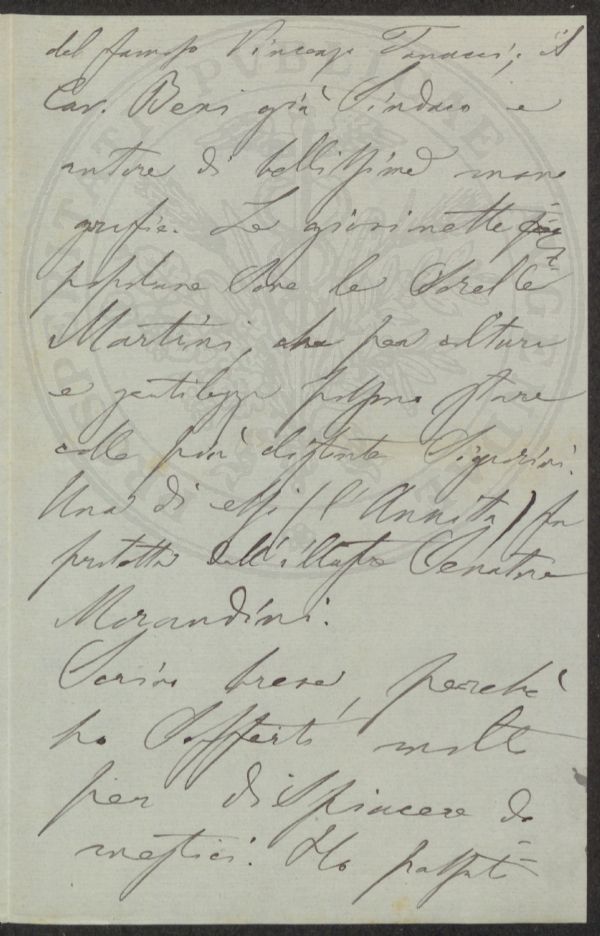 del famoso Vincenzo Tanacci; il
Cav. Beni già Sindaco e
autore di bellissime mono
grafie. Le giovinette più
popolane sono le Sorelle
Martini, che per coltura
e gentilezza possono stare
colle più distinte Signorine.
Una di esse (l'Annita) fu
protetta dall'illustre Senatore
Morandini.
Scrivo breve, perchè
ho Sofferto molto
per dispiacere do
mestici. Ho passato